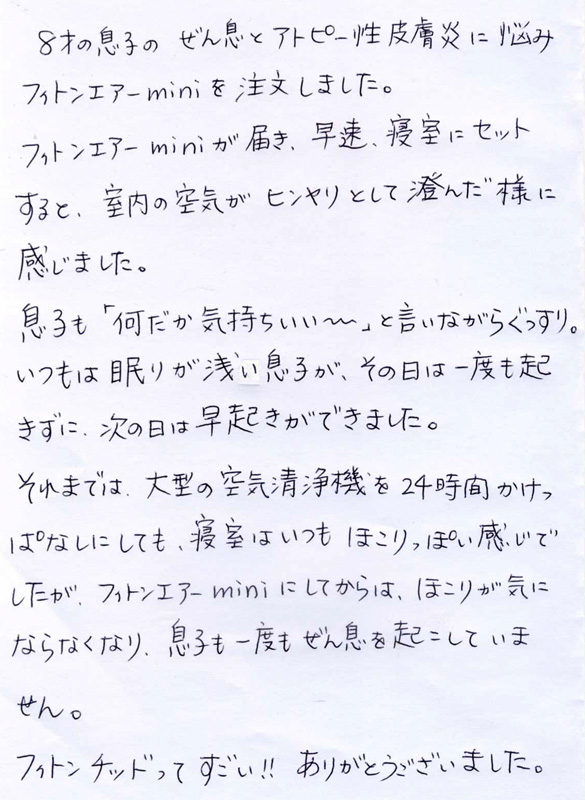 8才の息子の ぜん息とアトピー性皮膚炎に悩み
フィトンエアーminiを注文しました。
フィトンエアーminiが届き、早速、寝室にセット
すると、室内の空気がヒンヤリとして澄んだ様に
感じました。
息子も「何だか気持ちいい〜〜」と言いながらぐっすり。
いつもは眠りが浅い息子が、その日は一度も起
きずに、次の日は早起きができました。
それまでは、大型の空気清浄機を24時間かけっ
ぱなしにしても、寝室はいつもほこりっぽい感じで
したが、フィトンエアーminiにしてからは、ほこりが気に
ならなくなり、息子も一度もぜん息を起こしていま
せん。
フィトンチッドってすごい!! ありがとうございました。